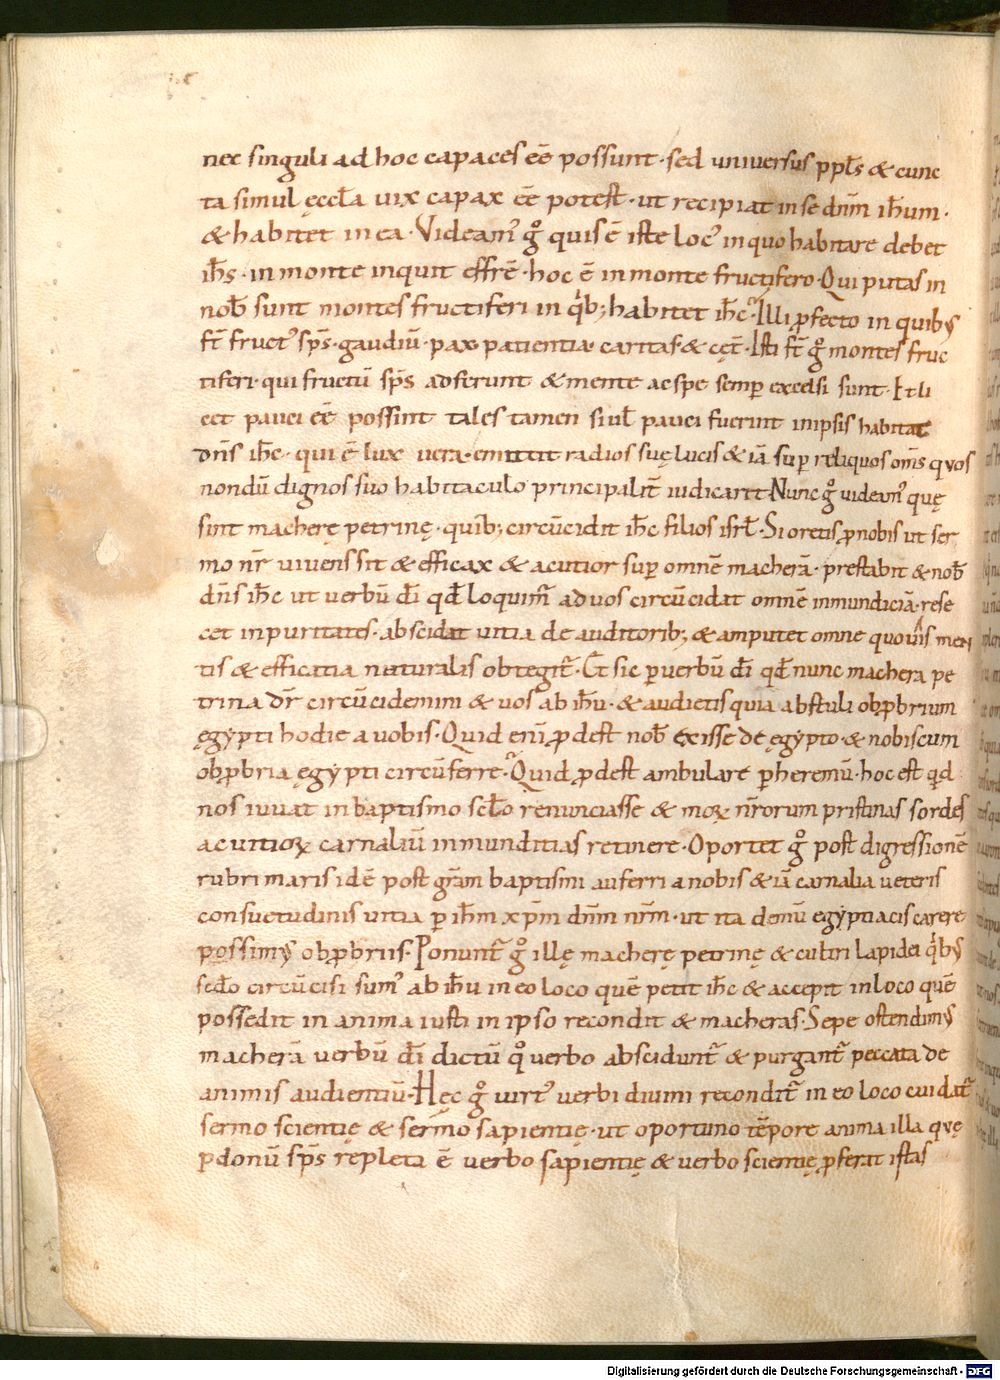 nec singuli ad hoc capaces eē possunt· sed universus ppl̄s & cunc
ta simul ęccl̄a vix capax eē potest· ut recipiat in se dnm̄ ih̄um·
& habitet in ea· Videam᷒ g̊ quis ē iste loc᷒ in quo habitare debet
ih̄s· in monte inquit effrē· hoc ē in monte fructifero· Qui putas in
nob̄ sunt montes fructiferi in q̇b; habitet ih̄c· Illi ꝓfecto in quibꝰ
st̄ fruct᷒ sp̄s· gaudiū· pax patientia caritas· & cęt̄· Isti st̄ g̊ montes fruc
tiferi· qui fructū sp̄s adferunt & mente ac spe semꝑ excelsi sunt· Et li
cet pauci eē possint tales tamen si ul̄ pauci fuerint in ipsis habitat
dn̄s ih̄c· qui ē lux vera· emittit radios suę lucis & iā suꝑ reliquos om̄s quos
nondū dignos suo habitaculo principalit̄ iudicarit· Nunc g̊ videam᷒ quę
sint macherę petrinę· quib; circūcidit ih̄c filios isrl̄· Si oretis ꝓ nobis ut ser
mo nr̄ vivens sit & efficax & acutior suꝑ omnē macherā· prestabit & nob̄
dn̄s ih̄c ut verbū dī qd̄ loquim̄ ad vos circūcidat omnē inmundiciā· rese
cet inpuritates· abscidat vitia de auditorib; & amputet omne quo vis men
tis & efficatia naturalis obtegit̄· Et sic ꝑ verbū dī qd̄ nunc machera pe
trina dr̄ circūcidemini & vos ab ih̄u· & audietis quia abstuli obꝓbrium
ęgypti hodie a vobis· Quid eni ꝓdest nob̄ exisse de ęgypto· & nobiscum
obꝓbria ęgypti circūferre· Quid ꝓdest ambulare ꝑ heremū· hoc est qd
nos iuvat in baptismo scl̄o renunciasse & moꝝ nr̄orum pristinas sordes
ac vitioꝝ carnaliū inmunditias retinere· Oportet g̊ post digressionē
rubri maris idē post gr̄am baptismi auferri a nobis & iā carnalia veteris
consuetudinis vitia ꝑ ih̄m xp̄m dnm̄ nrm̄· ut ita demū egyptiacis carere
possimꝰ obꝓbriis· Ponunt̄ g̊ illę macherę petrinę & cultri lapidei q̇bꝰ
scdo circūcisi sum᷒ ab ih̄u in eo loco quē petit ih̄c & accepit in loco quē
possedit in anima iusti in ipso recondit & macheras· Sepe ostendimꝰ
macherā verbū dī dictū q̊ verbo abscidunt̄ & purgant̄ peccata de
animis audientiū· Hęc g̊ virt᷒ verbi divini recondit̄ in eo loco cui dat̄
sermo scientię & sermo sapientię· ut oportuno tēpore anima illa quę
ꝑ donū sp̄s repleta ē verbo sapientię & verbo scientię ꝓferat istas
Digitalisierung gefördert durch die Deutsche Forschungsgemeinschaft - DFG